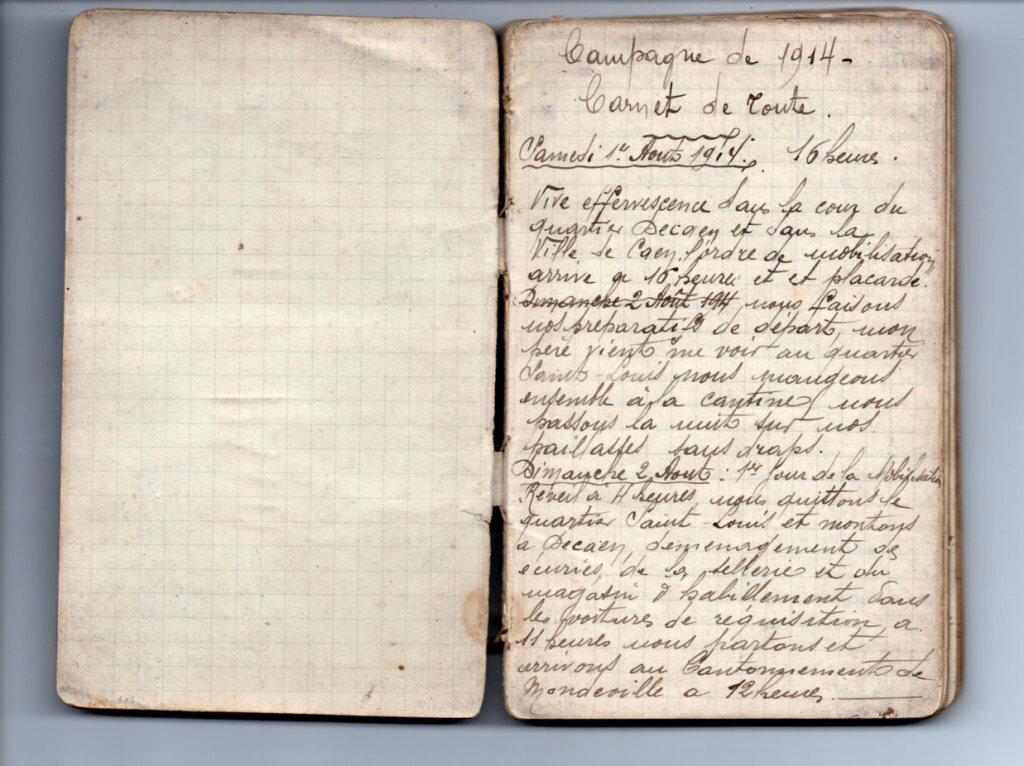 Campagne de 1914 -
Carnet de route.
Samedi 1er Août 1914. 16 heures.
Vive effervescence dans la cour du
quartier Decaen et dans la
Ville de Caen, l'ordre de mobilisation
arrive a 16 heures et et placardé.
Dimanche 2 Août 1914 nous faisons
nos preparatifs de départ, mon
père vient me voir au quartier
Saint-Louis nous mangeons
ensemble à a cantine, nous
passons la nuit sur nos
paillasses sans draps.
Dimanche 2 Aout : 1er Jour de la Mobilisation
Réveil a 4 heures nous quittons le
quartier Saint-Louis et montons
a Decaen, demenagement des
écuries, de la sellerie et du
magasin d'habillement dans
les voitures de réquisition, a
11 heures nous partons et
arrivons au Cantonnement de
Mondeville a 12 heures.